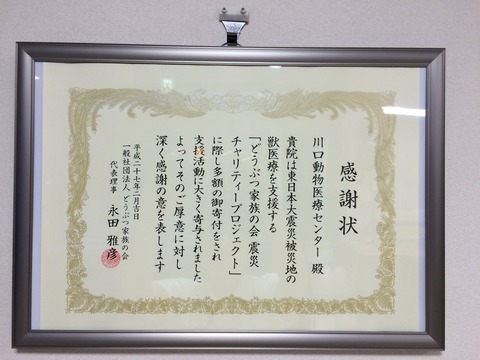 感謝状
川口動物医療センター 殿
貴院は東日本大震災被災地の
獣医療を支援する
「どうぶつ家族の会 震災
チャリティープロジェクト」
に際し多額の御寄付をされ
支援活動に大きく寄与されました
よってそのご厚意に対し
深く感謝の意を表します
平成二十七年二月吉日
一般社団法人 どうぶつ家族の会
代表理事 永田 雅彦